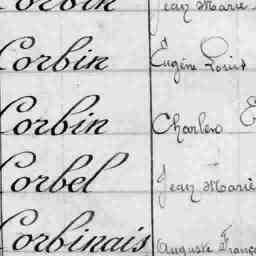 Corbin Jean Marie
Corbin Eugène Louis
Corbin Charles
Corbel Jean Marie
Corbinais Auguste França